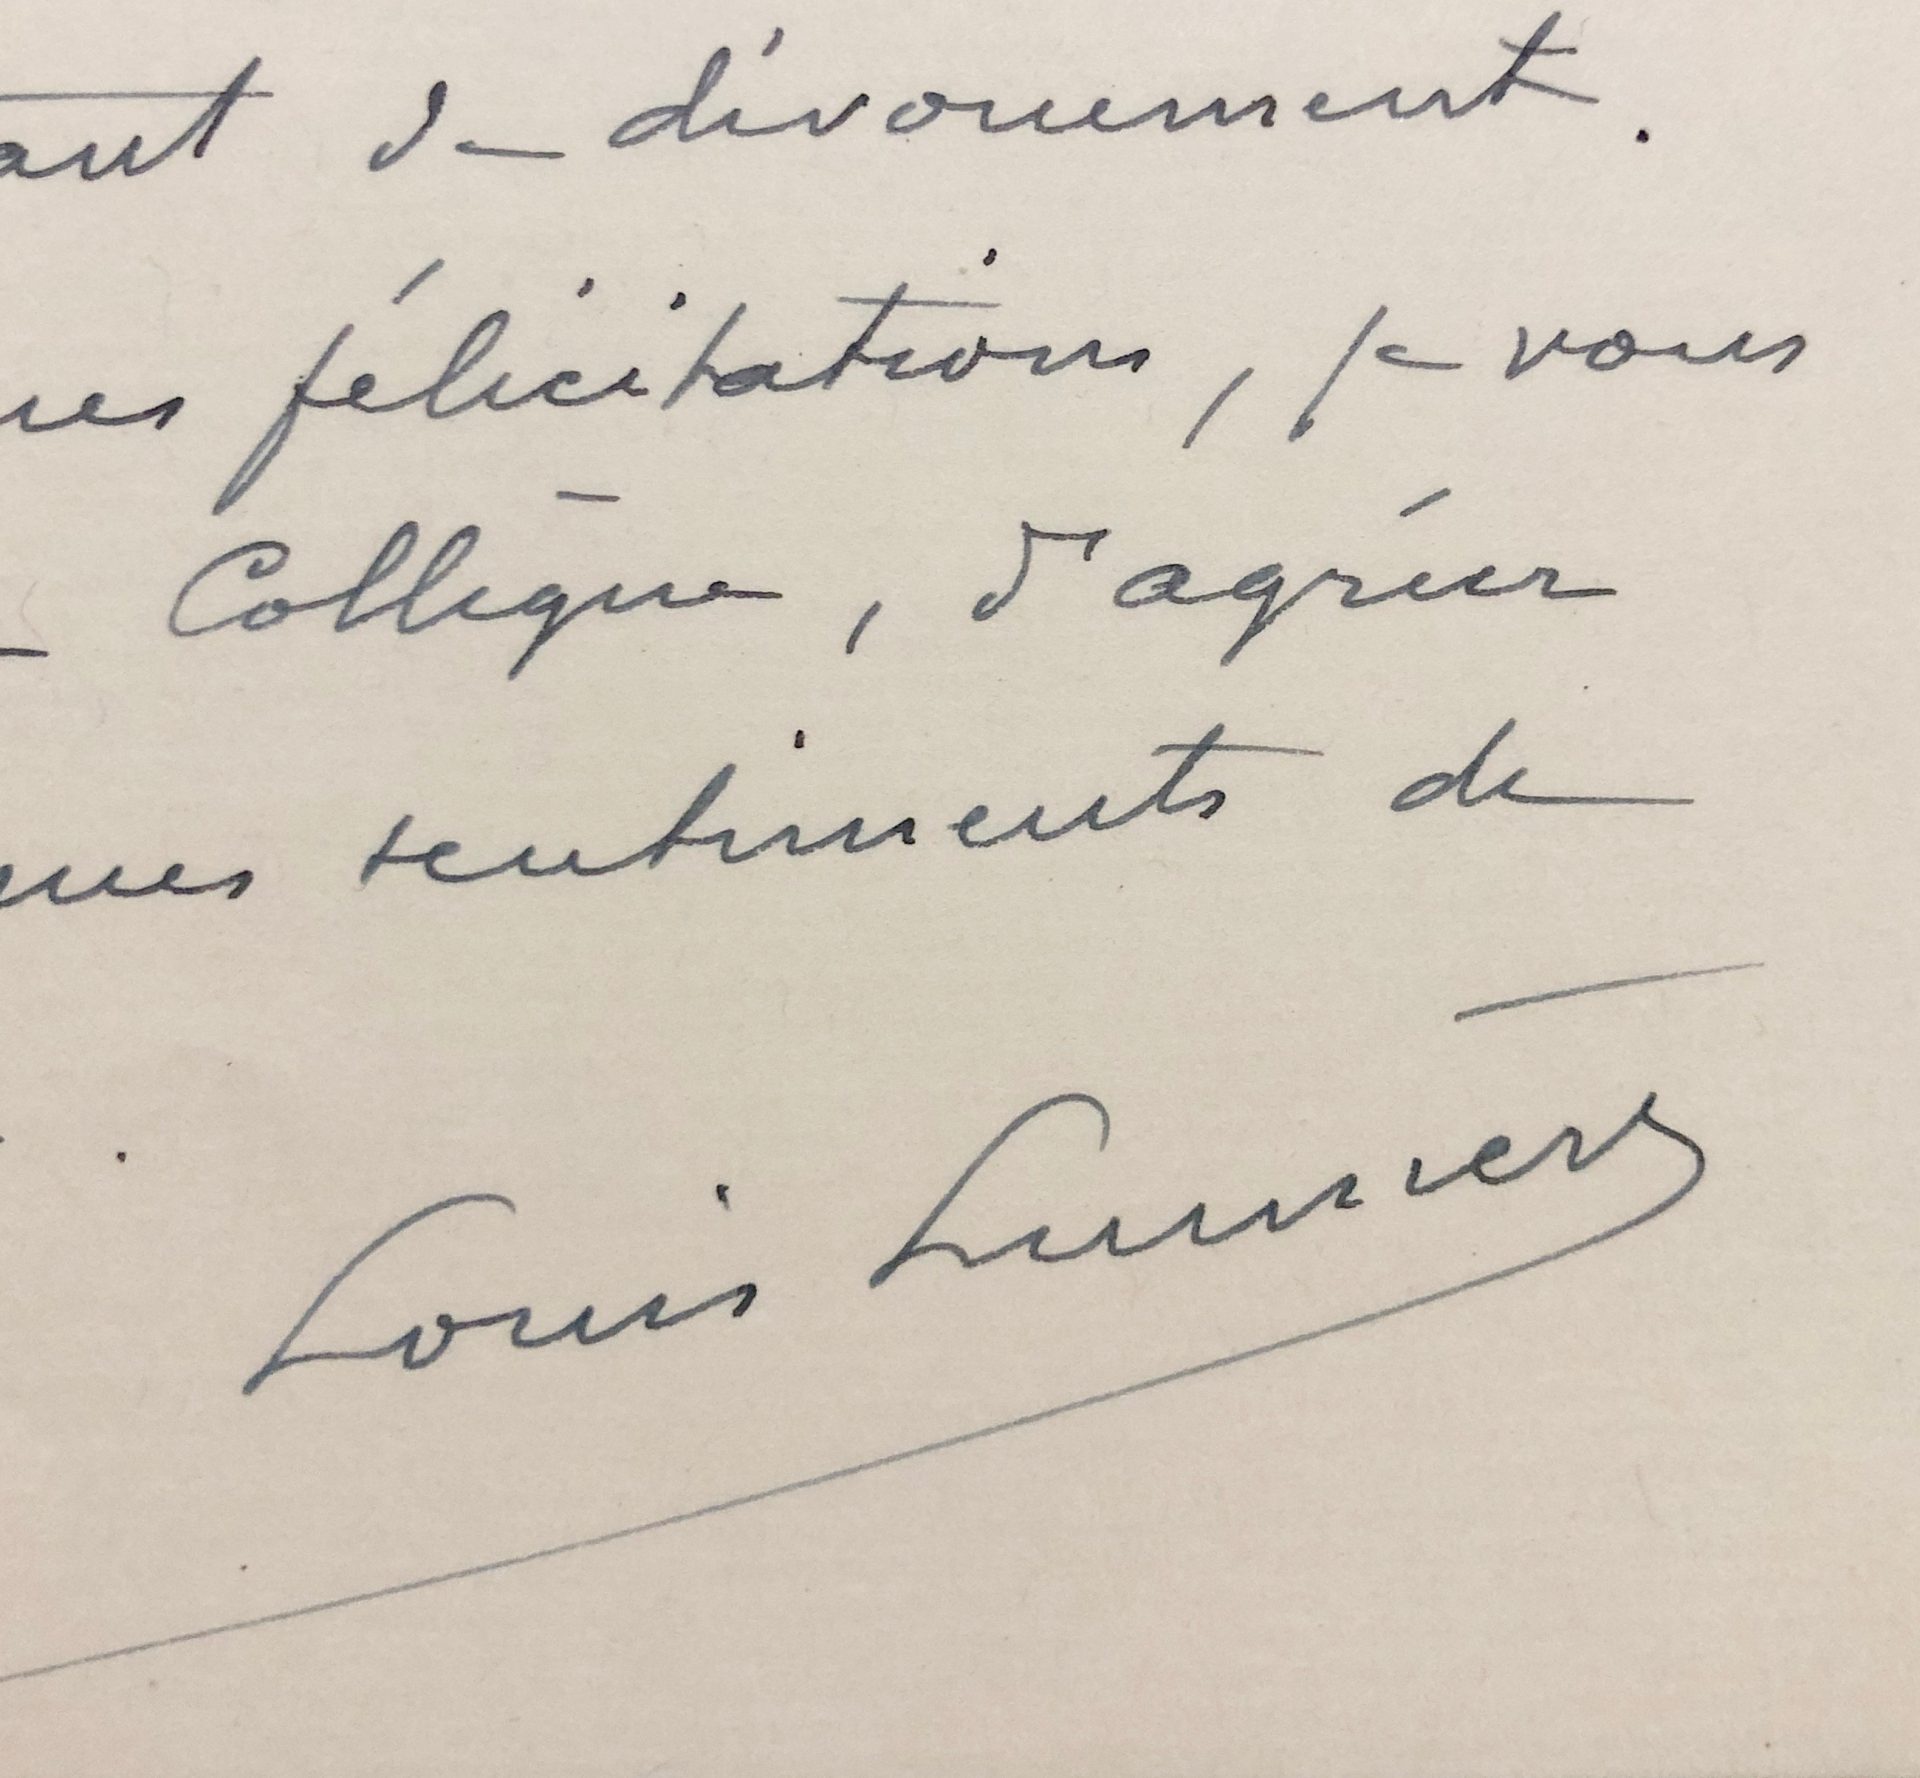 ant de dévouement.
mes félicitations, je vous
Collègue, d'agréer
mes sentiments de
Louis Lumière